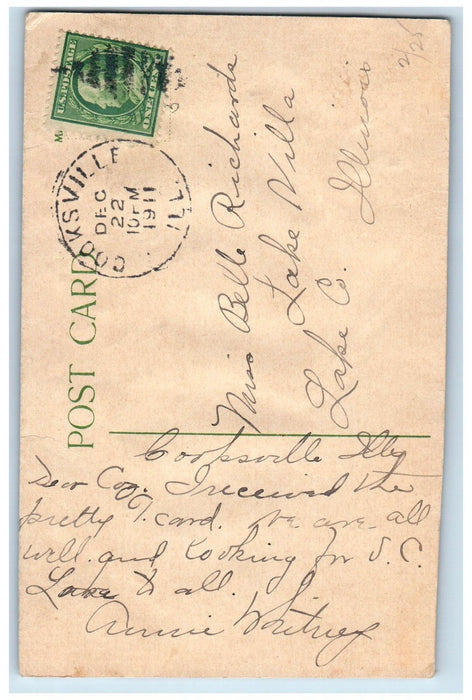 U.S. POSTAGE
ONE CENT
COOKSVILLE
DEC
22
10 PM
1911
ILL.
POST CARD
Miss Belle Richards
Lake Villa
Lake Co.
Illinois
2/25
Cooksville Ills
Dear Coz. I received the
pretty T. card. We are all
well and looking for S.C.
Love to all.
Annie Whitney